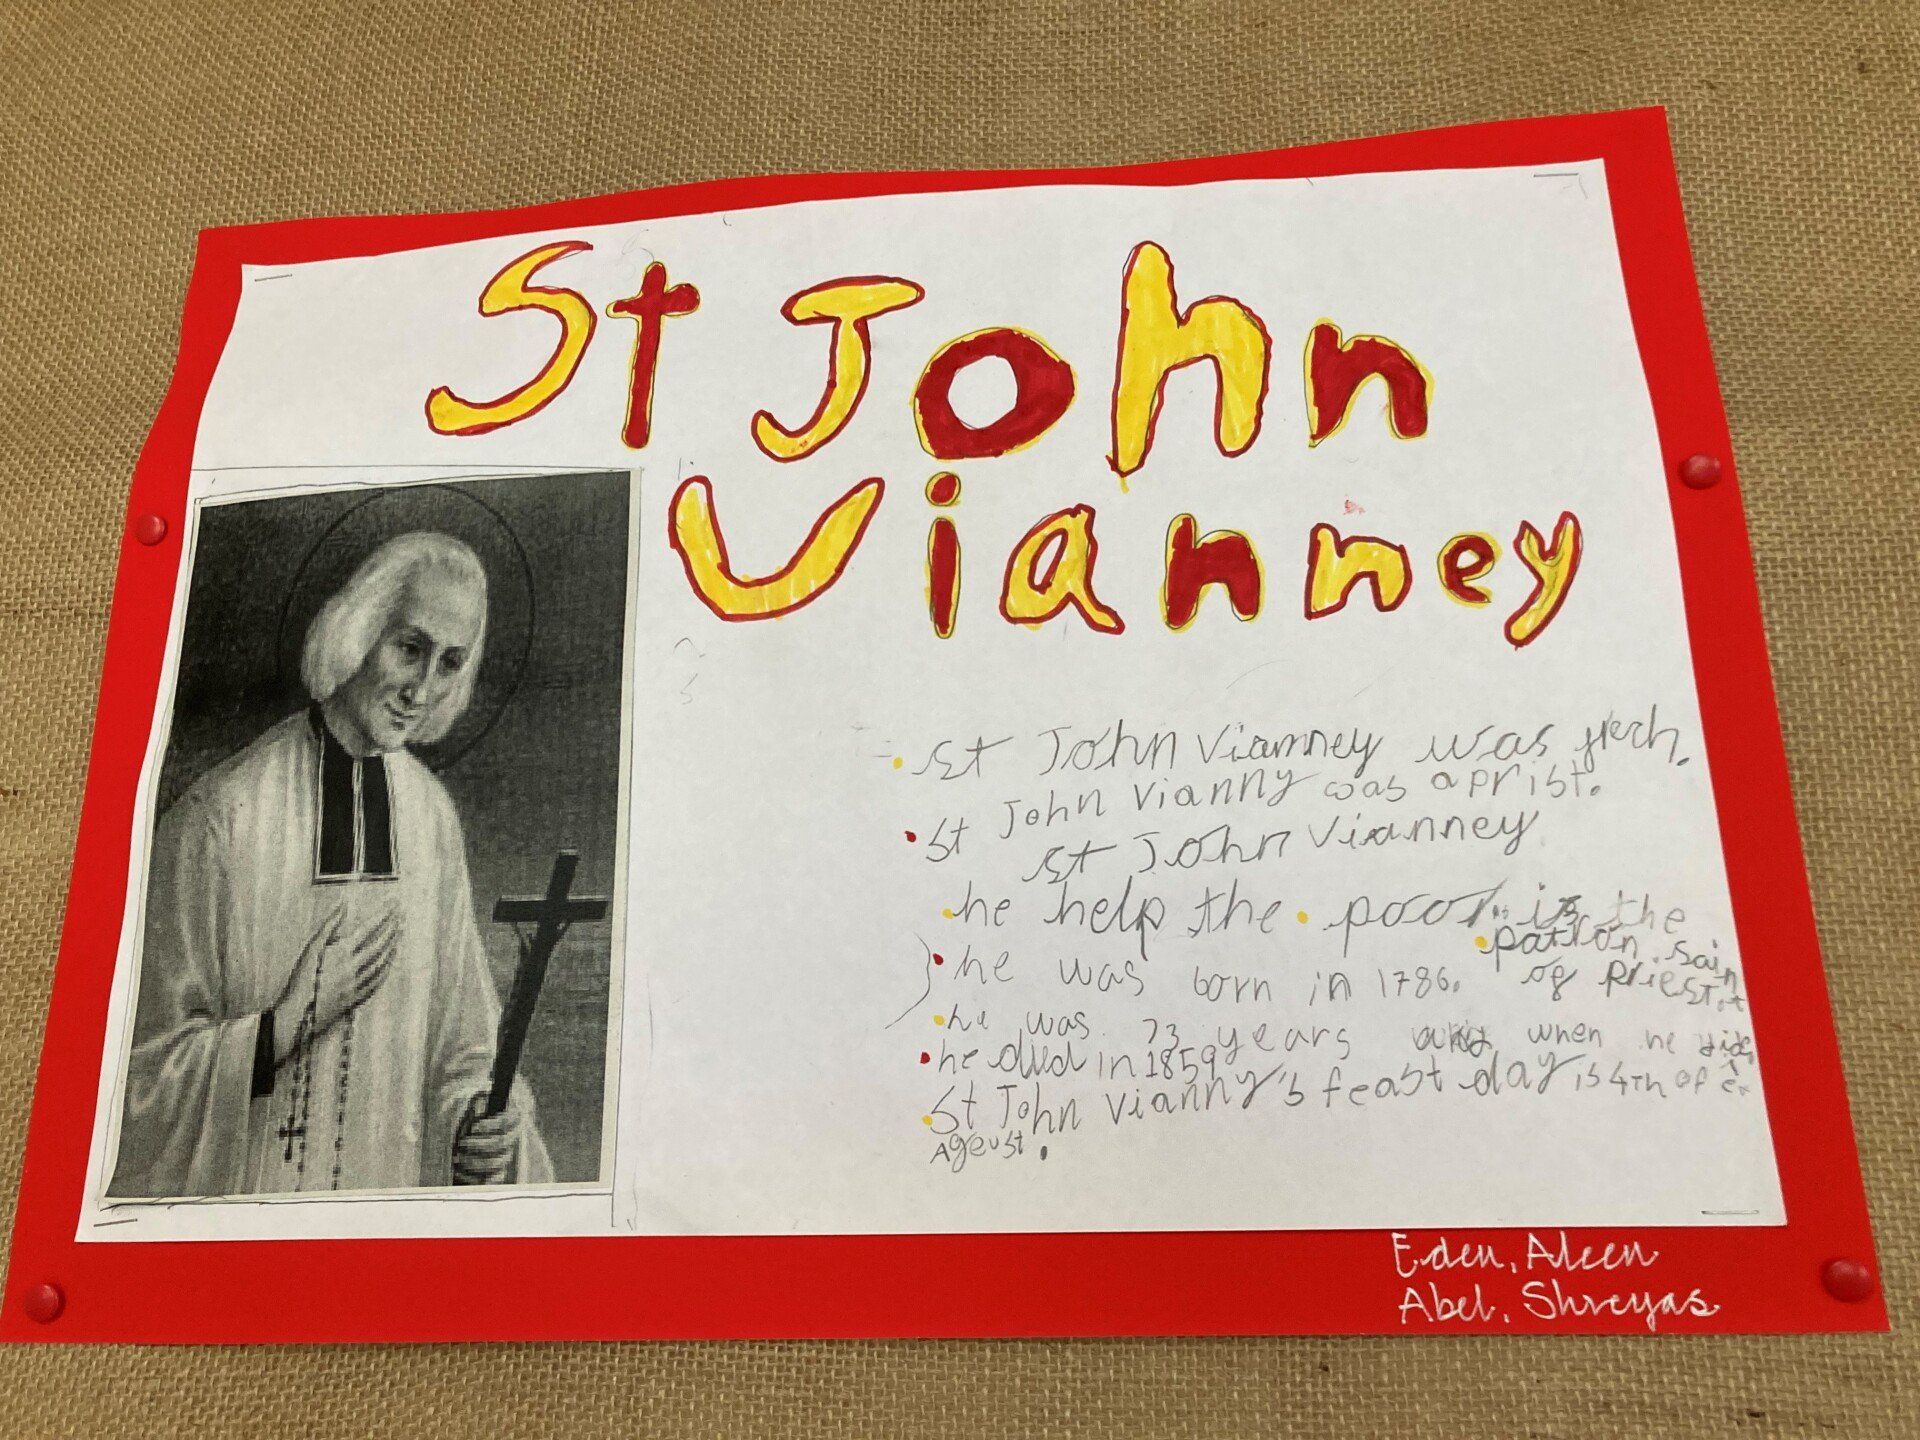 St John
Vianney
St John Vianney was
St John Vianny was a prist.
St John Vianney
he help the poor. is the
patron sain
he was born in 1786. of priest.t
he was 73 years when he
he died in 1859
St John Vianny's feast day is 4th of
Ageust.
Eden, Aleen
Abel, Shreyas